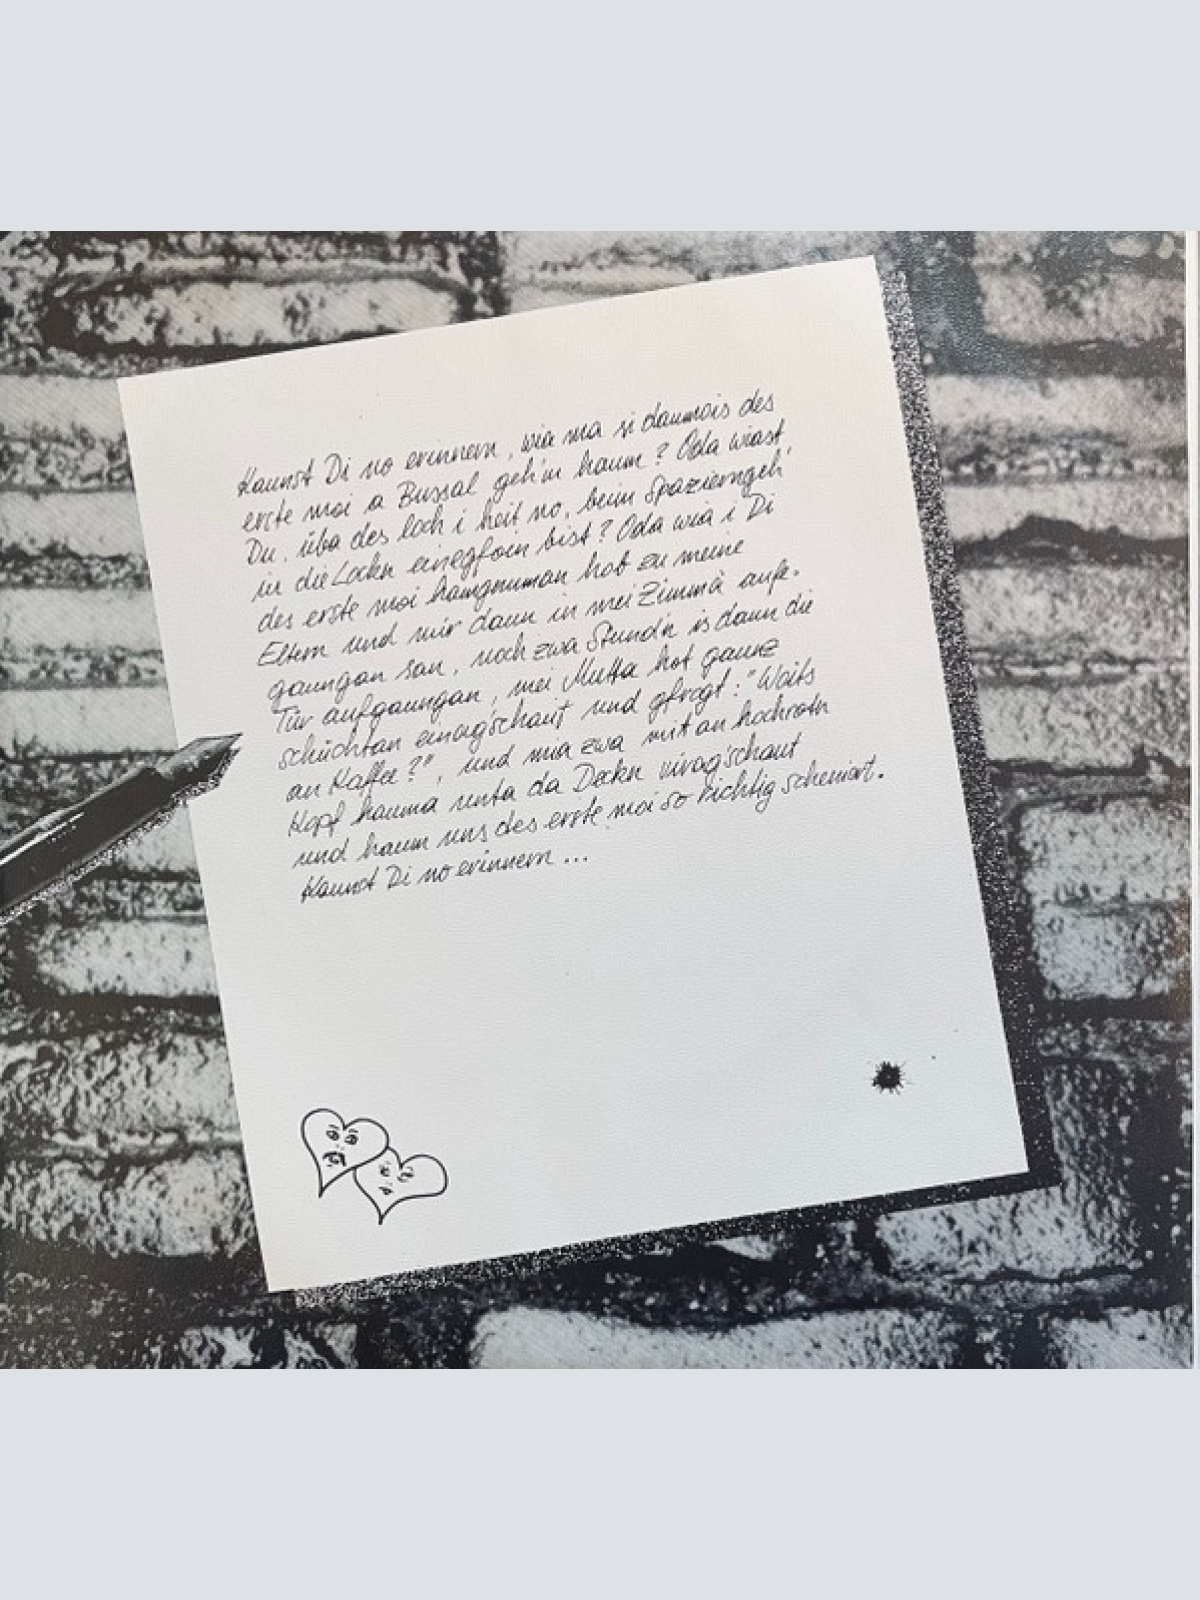 Kannst Di no erinnern, wia ma si daumois des
erste moi a Bussal geb'm haum? Oda wiast,
Du, üba des loch i heit no, beim Spazierngeh'
in die Lockn einegfoin bist? Oda wia i Di
des erste moi hamgnuman hob zu meine
Eltern und mir dann in mei Zimmä aufe-
gaungan san, noch zwa Stund'n is dann die
Tür aufgaungan, mei Mutta hot gaunz
schüchtan einagschaut und gfrogt: "Woits
an Kaffee?", und mia zwa mit an hochrotn
Kopf haumä unta da Deckn viragschaut
und haum uns des erste moi so richtig scheniert.
Kannst Di no erinnern ...